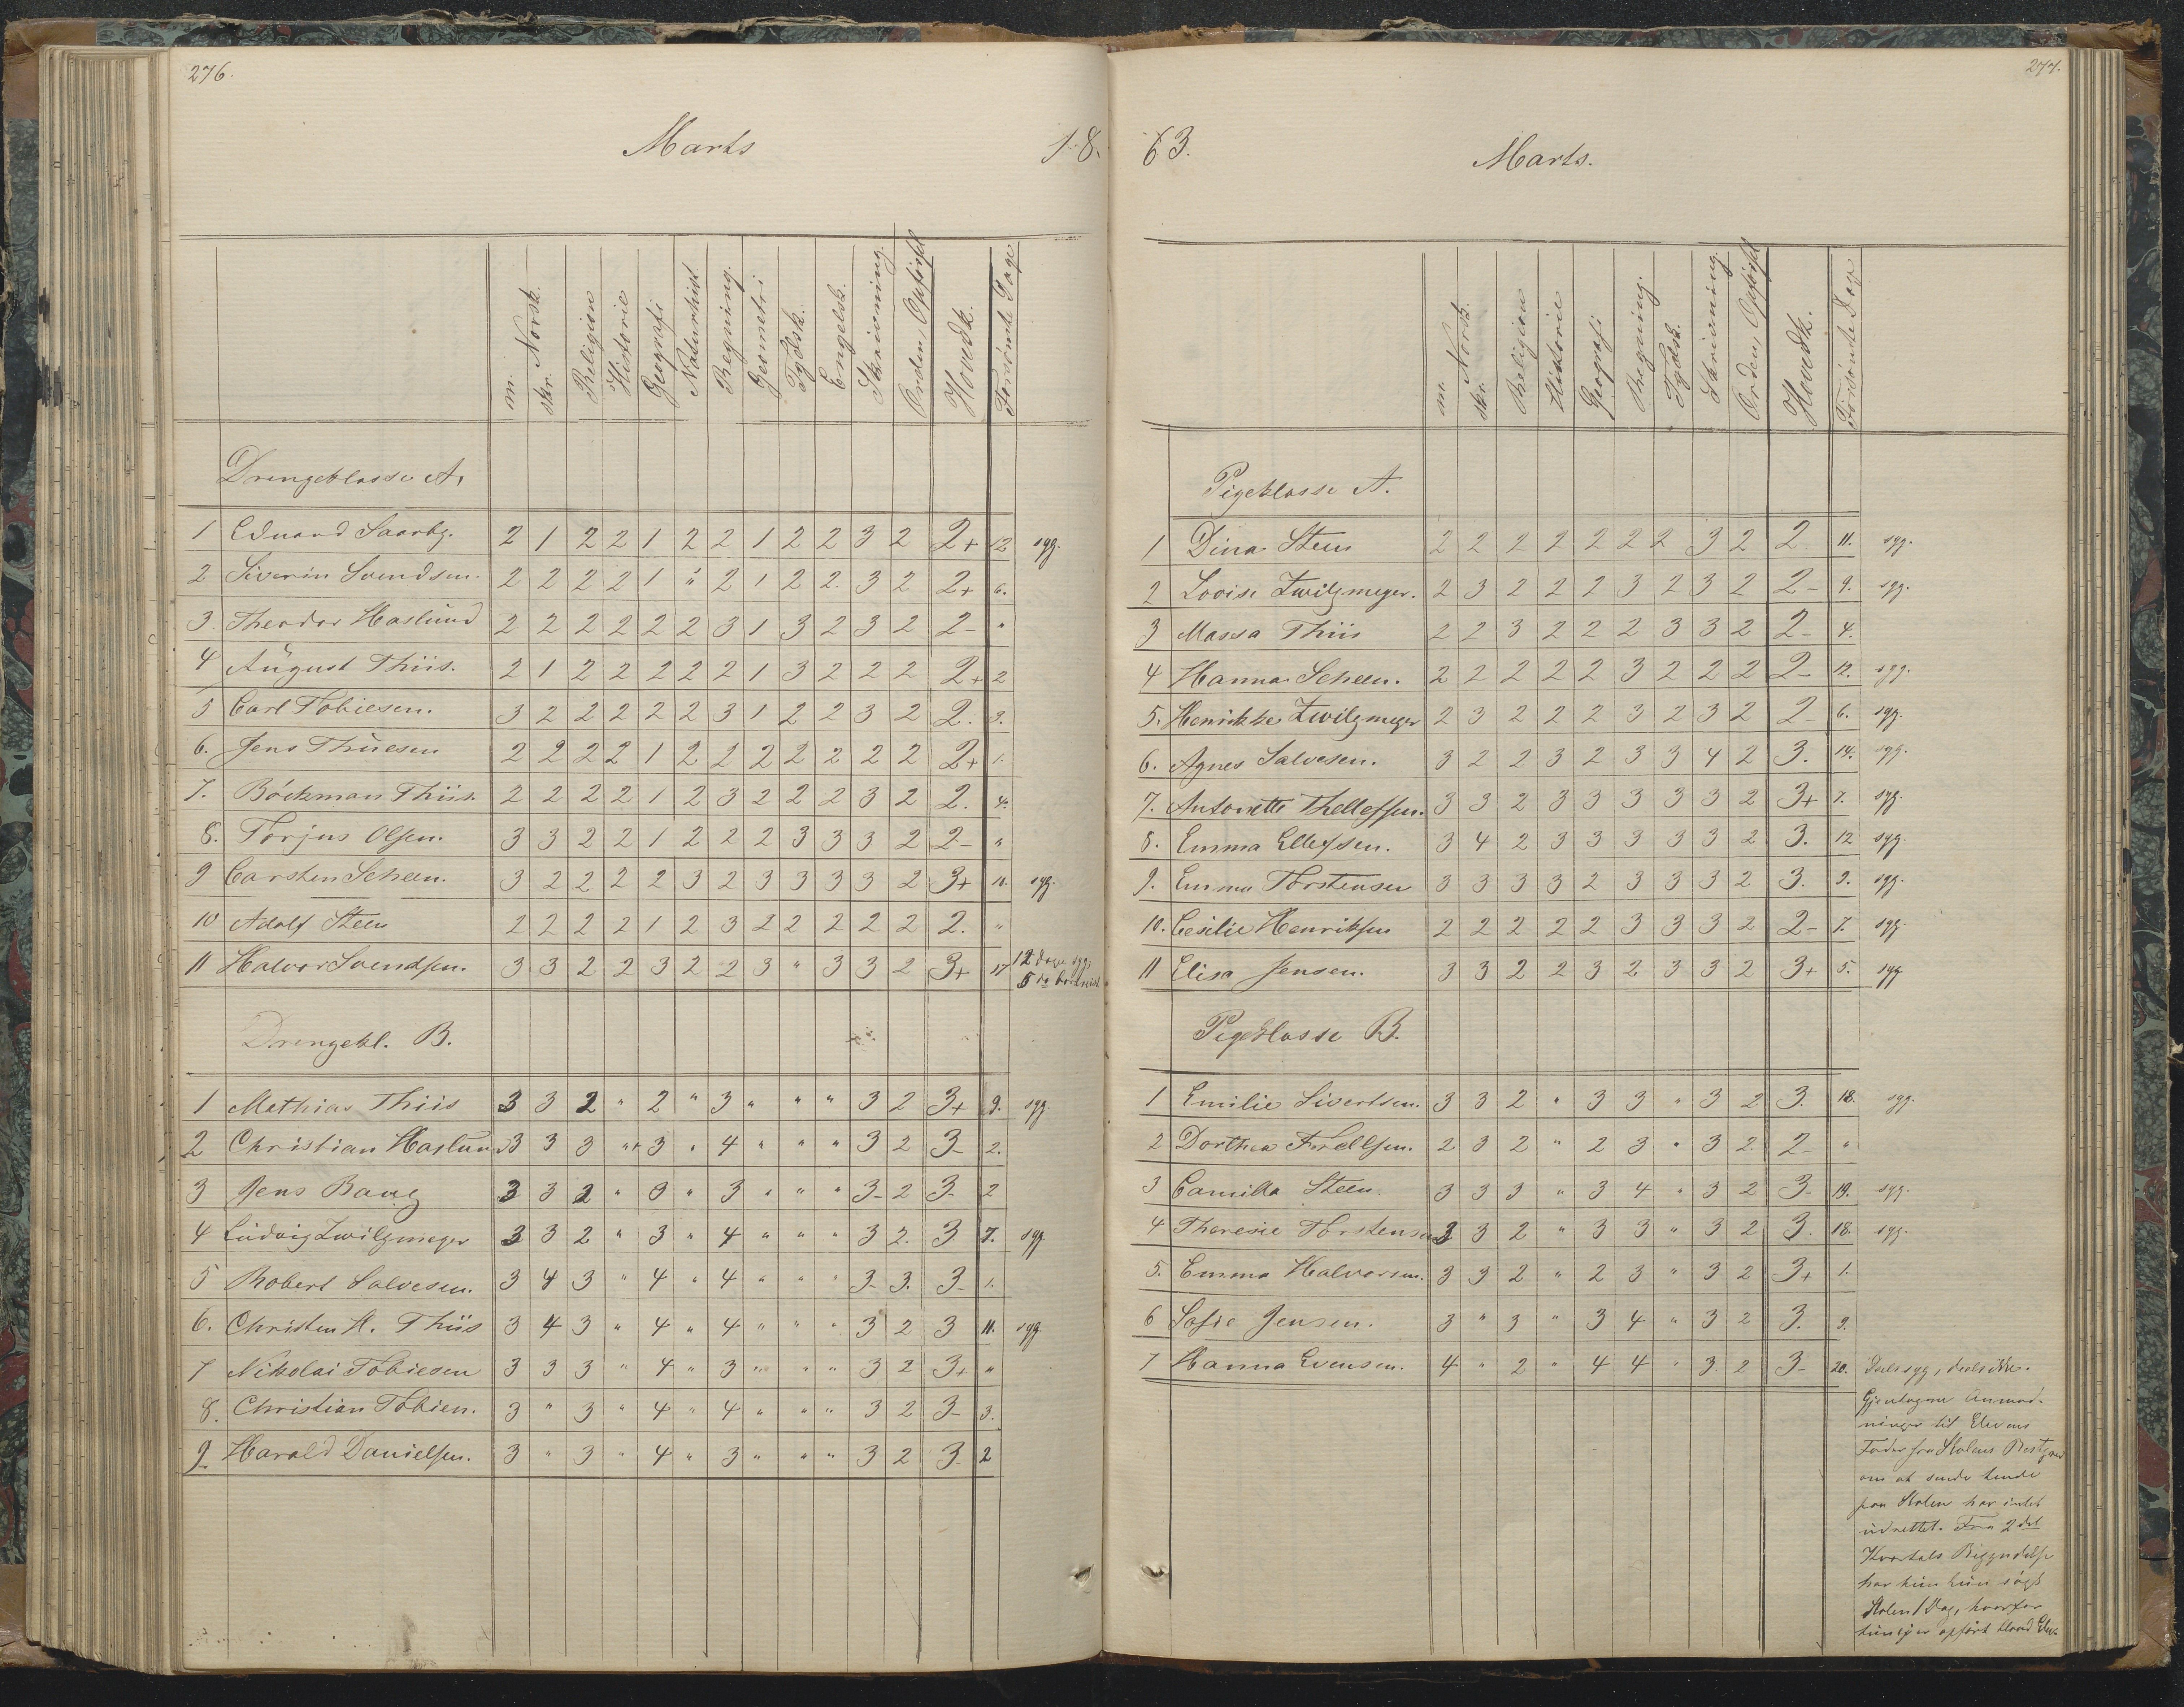 276.
Marts 18.
m. Norsk. skr. Religion Historie Geografi Naturhist Regning. Geometri Tydsk. Engelsk. Skrivning. Orden, Opførsl Hovedk. Forsømte Dage
Drengeklasse A.
1 Eduard Saarbg. 2 1 2 2 1 2 2 1 2 2 3 2 2+ 12 syg.
2 Siverin Svendsen. 2 2 2 2 1 " 2 1 2 2. 3 2 2+ 6.
3. Theodor Haslund 2 2 2 2 2 2 3 1 3 2 3 2 2- "
4 August Thiis. 2 1 2 2 2 2 2 1 3 2 2 2 2+ 2
5 Carl Tobiesen. 3 2 2 2 2 2 3 1 2 2 3 2 2. 3.
6. Jens Thuesen 2 2 2 2 1 2 2 2 2 2 2 2 2+ 1.
7. Böckman Thiis. 2 2 2 2 1 2 3 2 2 2 3 2 2. 4.
8. Torjus Olsen. 3 3 2 2 1 2 2 2 3 3 3 2 2- "
9 Carsten Scheen. 3 2 2 2 2 3 2 3 3 3 3 2 3+ 10. syg.
10 Adolf Steen 2 2 2 2 1 2 3 2 2 2 2 2 2. "
11 Halvor Svendsen. 3 3 2 2 3 2 2 3 " 3 3 2 3+ 17 12 dage syg,
5 do
Drengekl. B.
1 Mathias Thiis 3 3 2 " 2 " 3 " " " 3 2 3+ 9. syg.
2 Christian Haslund 3 3 3 "+ 3 " 4 " " " 3 2 3- 2.
3 Jens Bang 3 3 2 " 3 " 3 " " " 3- 2 3- 2
4 Ludvig Zwilgmeyer 3 3 2 " 3 " 4 " " " 3 2. 3. 7. syg
5 Robert Salvesen. 3 4 3 " 4 " 4 " " " 3- 3. 3- 1.
6. Christen H. Thiis 3 4 3 " 4 " 4 " " " 3 2 3 11. syg.
7 Nikolai Tobiesen 3 3 3 " 4 " 3 " " " 3 2 3+ "
8. Christian Tobien. 3 " 3 " 4 " 4 " " " 3 2 3- 3.
9 Harald Danielsen. 3 " 3 " 4 " 3 " " " 3 2 3. 2
277.
63. Marts.
m. Norsk. skr. Religion Historie Geografi Regning. Tydsk. Skrivning. Orden, Opførsl Hovedk. Forsømte Dage
Pigeklasse A.
1 Dina Steen 2 2 2 2 2 2 2 3 2 2 11. syg.
2 Lovise Zwilgmeyer. 2 3 2 2 2 3 2 3 2 2- 9. syg.
3 Massa Thiis 2 2 3 2 2 2 3 3 2 2- 4.
4 Hanna Scheen. 2 2 2 2 2 3 2 2 2 2- 12. syg.
5. Henrikke Zwilgmeyer 2 3 2 2 2 3 2 3 2 2- 6. syg.
6. Agnes Salvesen. 3 2 2 3 2 3 3 4 2 3. 14. syg.
7. Antonette Thellefsen. 3 3 2 3 3 3 3 3 2 3+ 7. syg.
8. Emma Ellefsen. 3 4 2 3 3 3 3 3 2 3. 12 syg.
9. Emma Torstensen 3 3 3 3 2 3 3 3 2 3. 9. syg.
10. Cesilie Henriksen 2 2 2 2 2 3 3 3 2 2- 7. syg.
11 Elisa Jensen. 3 3 2 2 3 2 3 3 2 3+ 5. syg
Pigeklasse B.
1 Emilie Sivertsen. 3 3 2 " 3 3 " 3 2 3. 18. syg.
2 Dorthea 2 3 2 " 2 3 " 3 2. 2- "
3 Camilla Steen. 3 3 3 " 3 4 " 3 2 3- 19. syg.
4 Theresie Torstensen 3 3 2 " 3 3 " 3 2 3. 18. syg.
5. Emma Halvorsen. 3 3 2 " 2 3 " 3 2 3+ 1.
6 Sofie Jensen. 3 " 3 " 3 4 " 3 2 3. 9.
7 Hanna Evensen. 4 " 2 " 4 4 " 3 2 3- 20. Deels syg, deels ikke.
Gjentagne Anmod-
ninger til Elevens
Fader fra Skolens Bestyrer
om at sende hende
paa Skolen har intet
udrettet. Fra 2det
Kvartals Begyndelse
har hun kun søgt
Skolen 1 Dag, hvorfor
hun ei er opført blandt Elev-